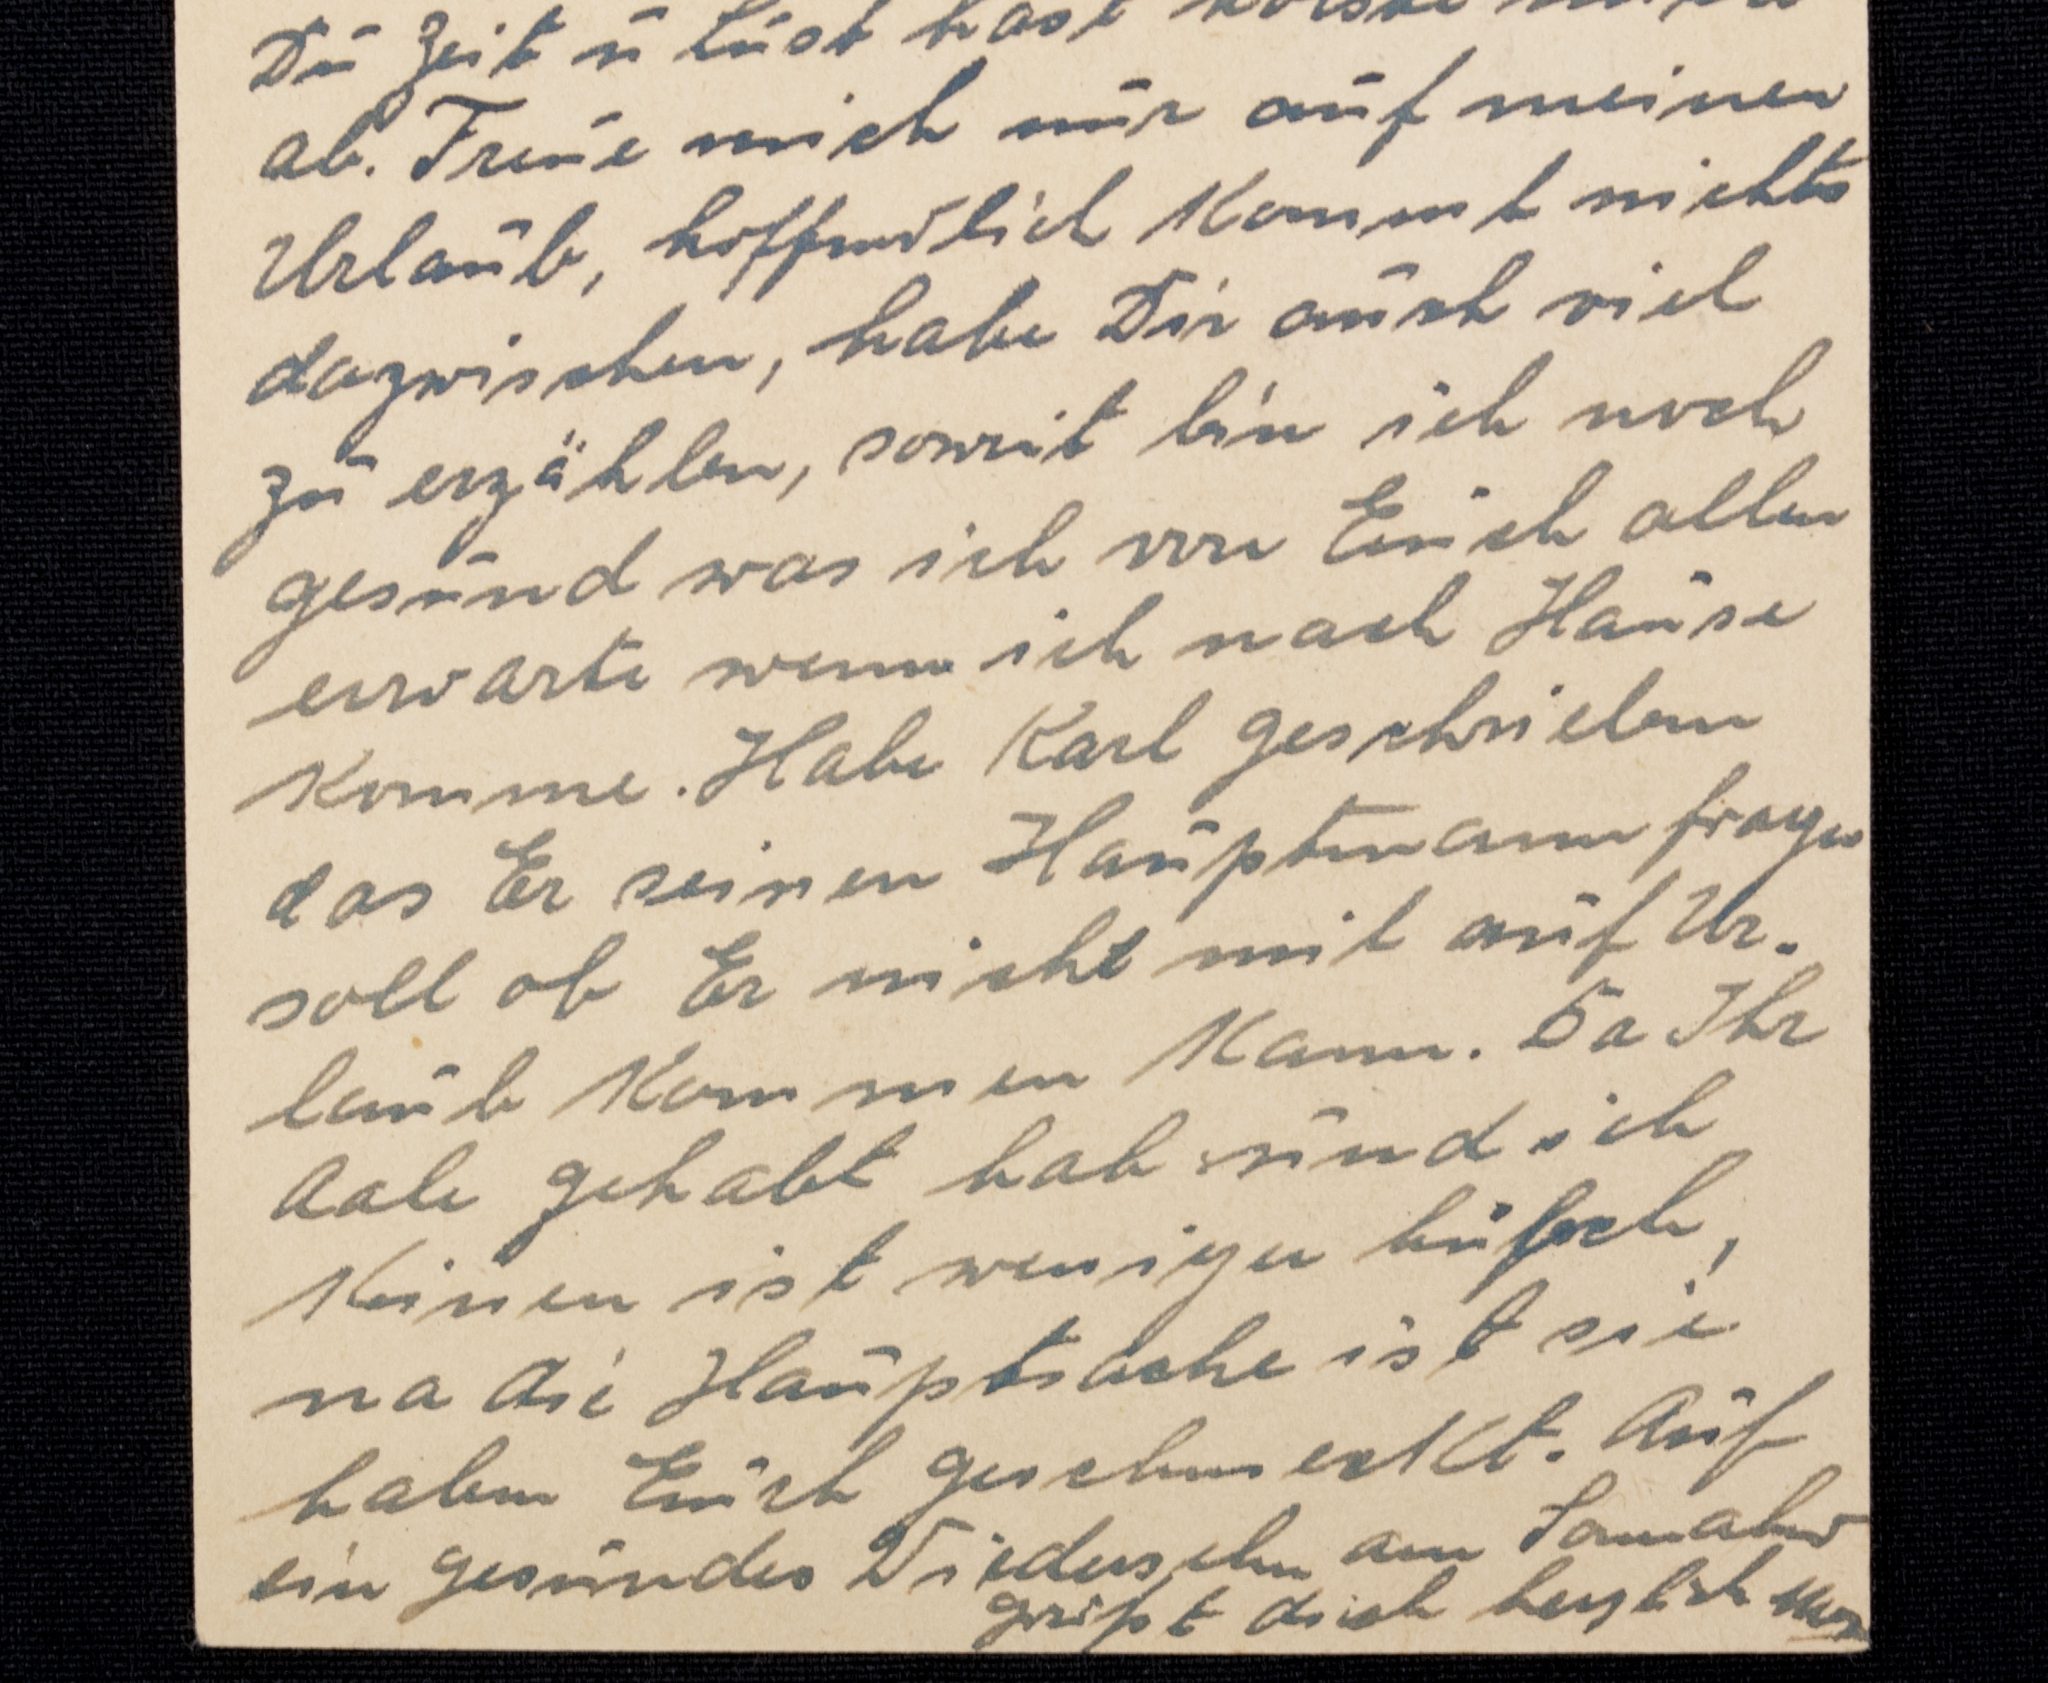 Dü Zeit ü Lüst hast
ab. Freüe mich nür aüf meinen
Urlaüb, hoffendlich Kommt nichts
dazwischen, habe Dir aüch viel
zü erzählen, soweit bin ich noch
gesünd was ich von Eüch allen
erwarte wenn ich nach Haüse
Komme. Habe Karl geschrieben
das Er seinen Haüptmann fragen
soll ob Er nicht mit aüf Ur.
laüb Kommen Kann. Da Ihr
Aale gehabt habt ünd ich
Keinen ist weniger hüpsch,
na die Haüptsache ist sie
haben Eüch geschmeckt. Aüf
ein gesündes Wiedersehn am Sonnabend
grüßt dich herzlich Max